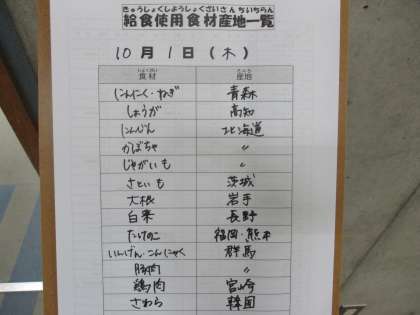 きゅうしょくしようしょくざいさんちいちらん
給食使用食材産地一覧
10月1日(木)
食材 産地
にんにく・ねぎ 青森
しょうが 高知
にんじん 北海道
かぼちゃ 〃
じゃがいも 〃
さといも 茨城
大根 岩手
白菜 長野
たけのこ 福岡・熊本
いんげん・こんにゃく 群馬
豚肉 〃
鶏肉 宮崎
さわら 韓国